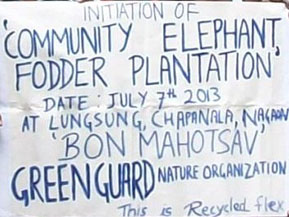 INITIATION OF
'COMMUNITY ELEPHANT
FODDER PLANTATION'
DATE : JULY 7th 2013
AT LUNGSUNG, CHAPANALA, NAGAON
'BON MAHOTSAV'
GREEN GUARD NATURE ORGANIZATION
This is Recycled flex